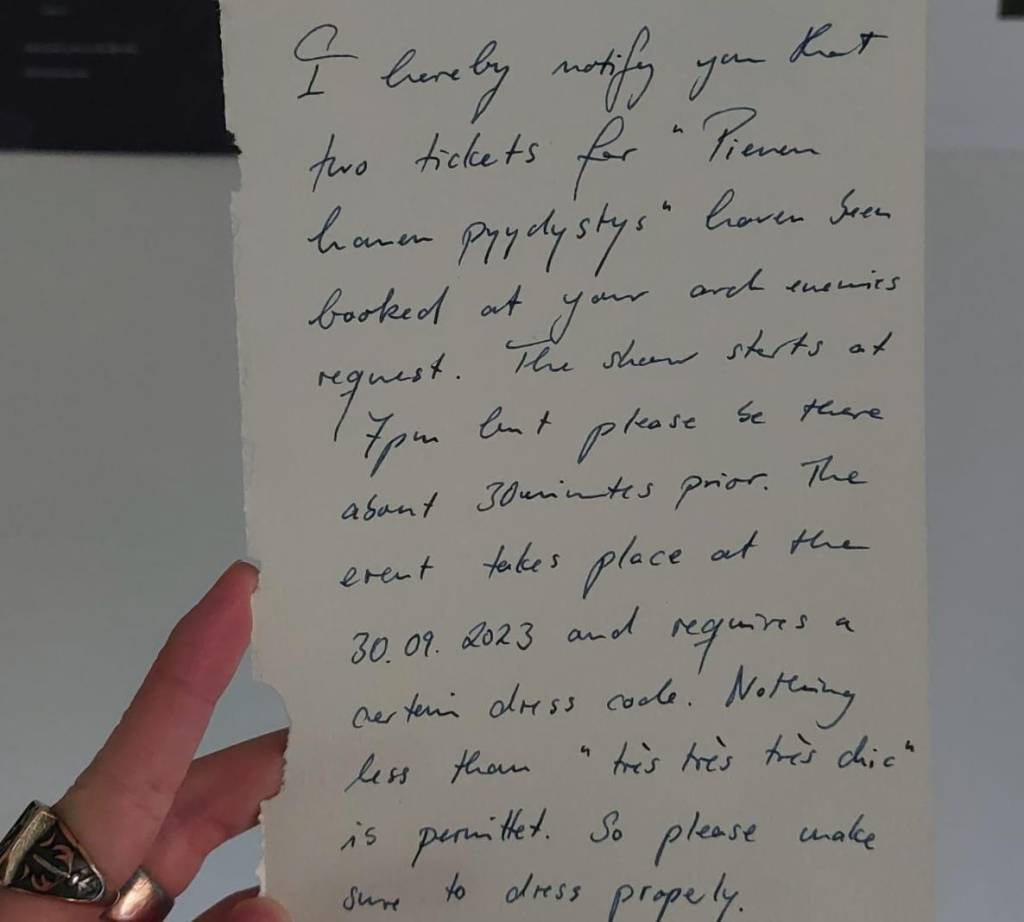 I hereby notify you that
two tickets for "Pienen
hanen pyydystys" haven been
booked at your arch enemies
request. The show starts at
7pm but please be there
about 30minutes prior. The
event takes place at the
30.09.2023 and requires a
certain dress code. Nothing
less than "très très très chic"
is permittet. So please make
sure to dress properly.